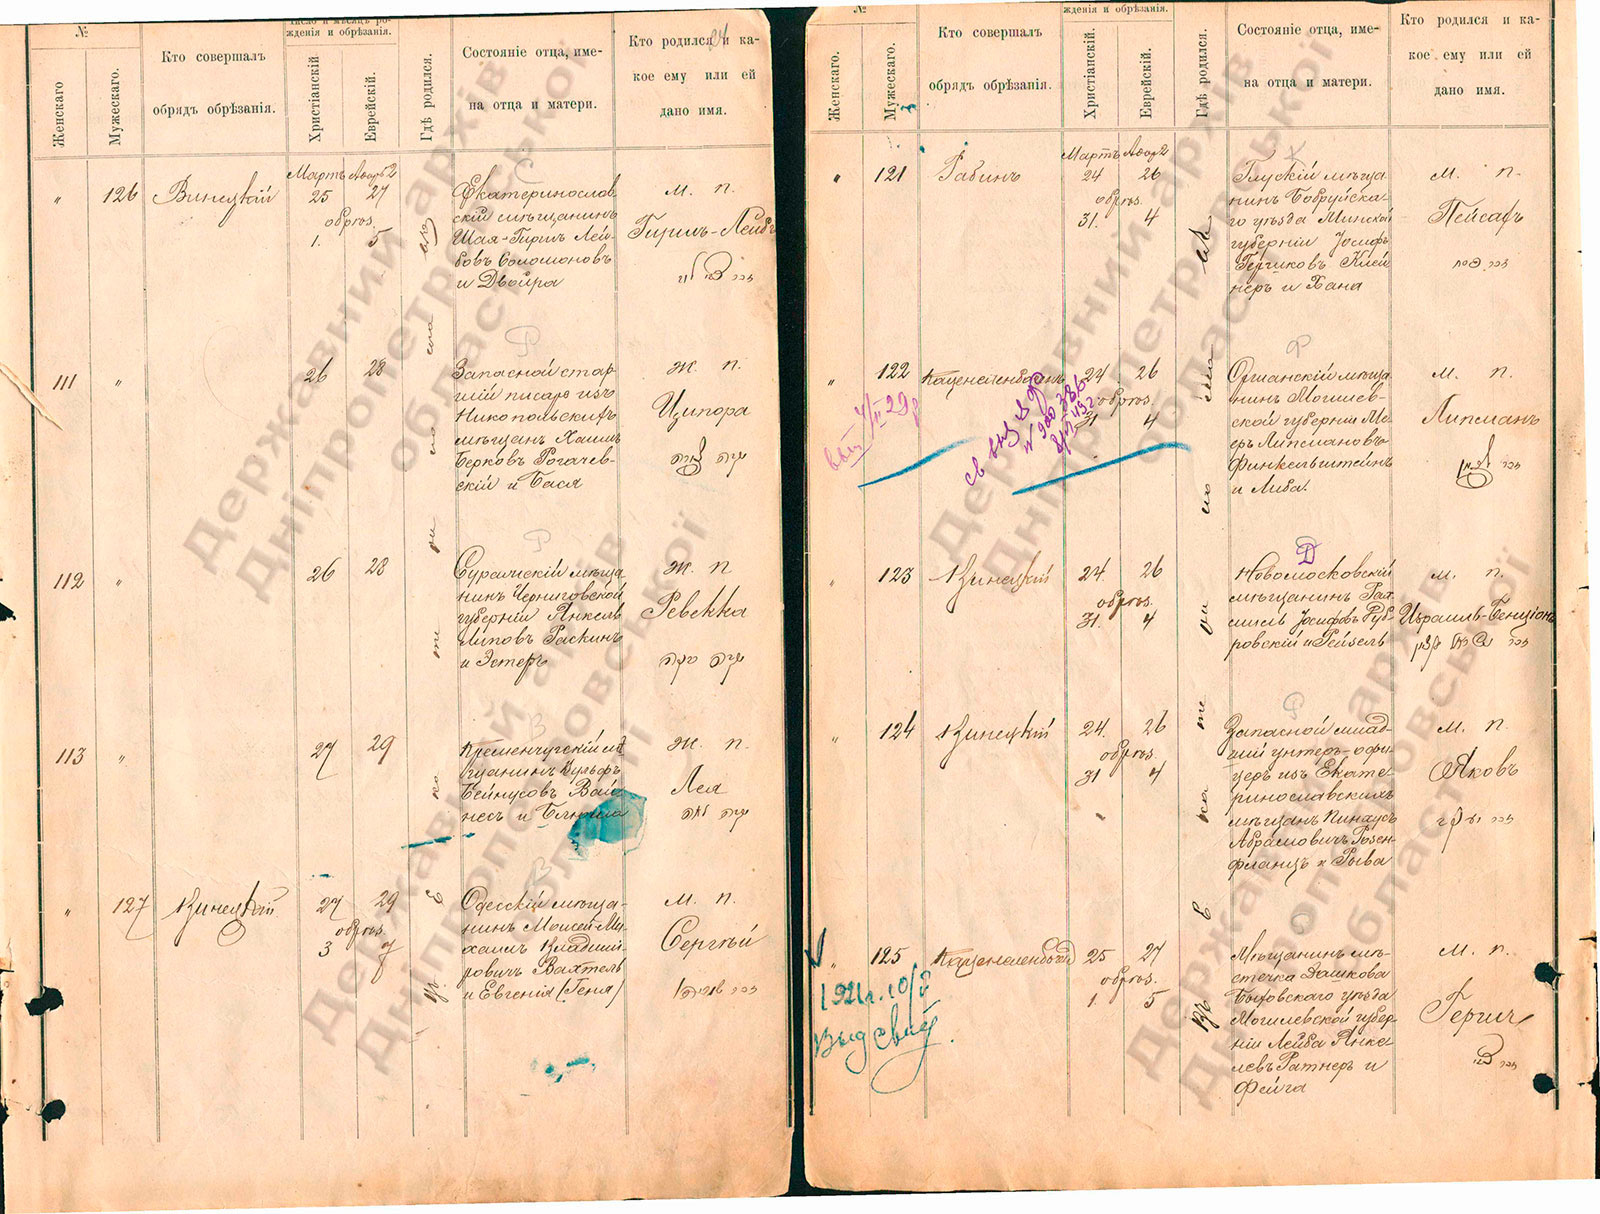 №
Женскаго
Мужескаго.
Кто совершалъ
обрядъ обрѣзанія.
Число и мѣсяцъ ро-
жденія и обрѣзанія.
Христіанскій
Еврейскій.
Гдѣ родился.
Состояніе отца, име-
на отца и матери.
Кто родился и ка-
кое ему или ей
дано имя.
"
126
Винецкій
Мартъ
25
27
обрѣз.
1.
5
Екатеринослав
скій мѣщанинъ
Шая-Гиршъ Лей-
бовъ Соломоновъ
и Двойра
м. п.
Гиршъ-Лейбъ
111
"
26
28
Запасной стар-
шій писарь изъ
Никопольскихъ
мѣщанъ Хаимъ
Берковъ Рогачев-
скій и Бася
ж. п.
Ципора
112
"
26
28
Суражскій мѣща
нинъ Черниговской
губерніи Янкель
Липовъ Раскинъ
и Эстеръ
ж. п
Ревекка
113
"
27
29
Кременчугскій мѣ
щанинъ Вульфъ
Бейнусовъ Вай
несъ и Блюма
ж. п.
Лея
"
127
Винецкій
27
29
обрѣз.
3
7
Одесскій мѣща-
нинъ Моисей-Ми-
хаилъ Владими-
ровичъ Вахтель
и Евгенія (Геня)
м. п.
Сергѣй
въ Екатеринославѣ
№
Женскаго.
Мужескаго.
Кто совершалъ
обрядъ обрѣзанія.
жденія и обрѣзанія.
Христіанскій.
Еврейскій.
Гдѣ родился.
Состояніе отца, име-
на отца и матери.
Кто родился и ка-
кое ему или ей
дано имя.
"
121
Рабинъ
Мартъ
24
26
обрѣз.
31.
4
Глускій мѣща
нинъ Бобруйска-
го уѣзда Минской
губерніи Іосифъ
Герчиковъ Клей
неръ и Хана
м. п.
Пейсахъ
זכר פסח
"
122
Каценеленбогенъ
24
26
обрѣз.
31
4
Оршанскій мѣща
нинъ Могилев-
ской губерніи Ме-
еръ Липмановъ
Финкельштейнъ
и Либа.
м. п.
Липманъ
"
123
Винецкій
24.
26
обрѣз.
31.
4
Новомосковскій
мѣщанинъ Рах
миель Іосифовъ Дуб-
ровскій и Рейзель
м. п.
Израиль-Бенціонъ
"
124
Винецкій
24.
26
обрѣз.
31
4
Запасной млад
шій унтеръ-офи
церъ изъ Екате
ринославскихъ
мѣщанъ Пинхусъ
Абрамовичъ Розен-
фланцъ и Рыва
м. п.
Яковъ
"
125
Каценеленбогенъ
25
27
обрѣз.
1.
5
Мѣщанинъ мѣ-
стечка Дашкова
Быховскаго уѣзда
Могилевской губер-
ніи Лейба Янке
левъ Ратнеръ и
Фейга
м. п.
Гершъ
въ Екатеринославѣ
Державний архів
Дніпропетровської
області